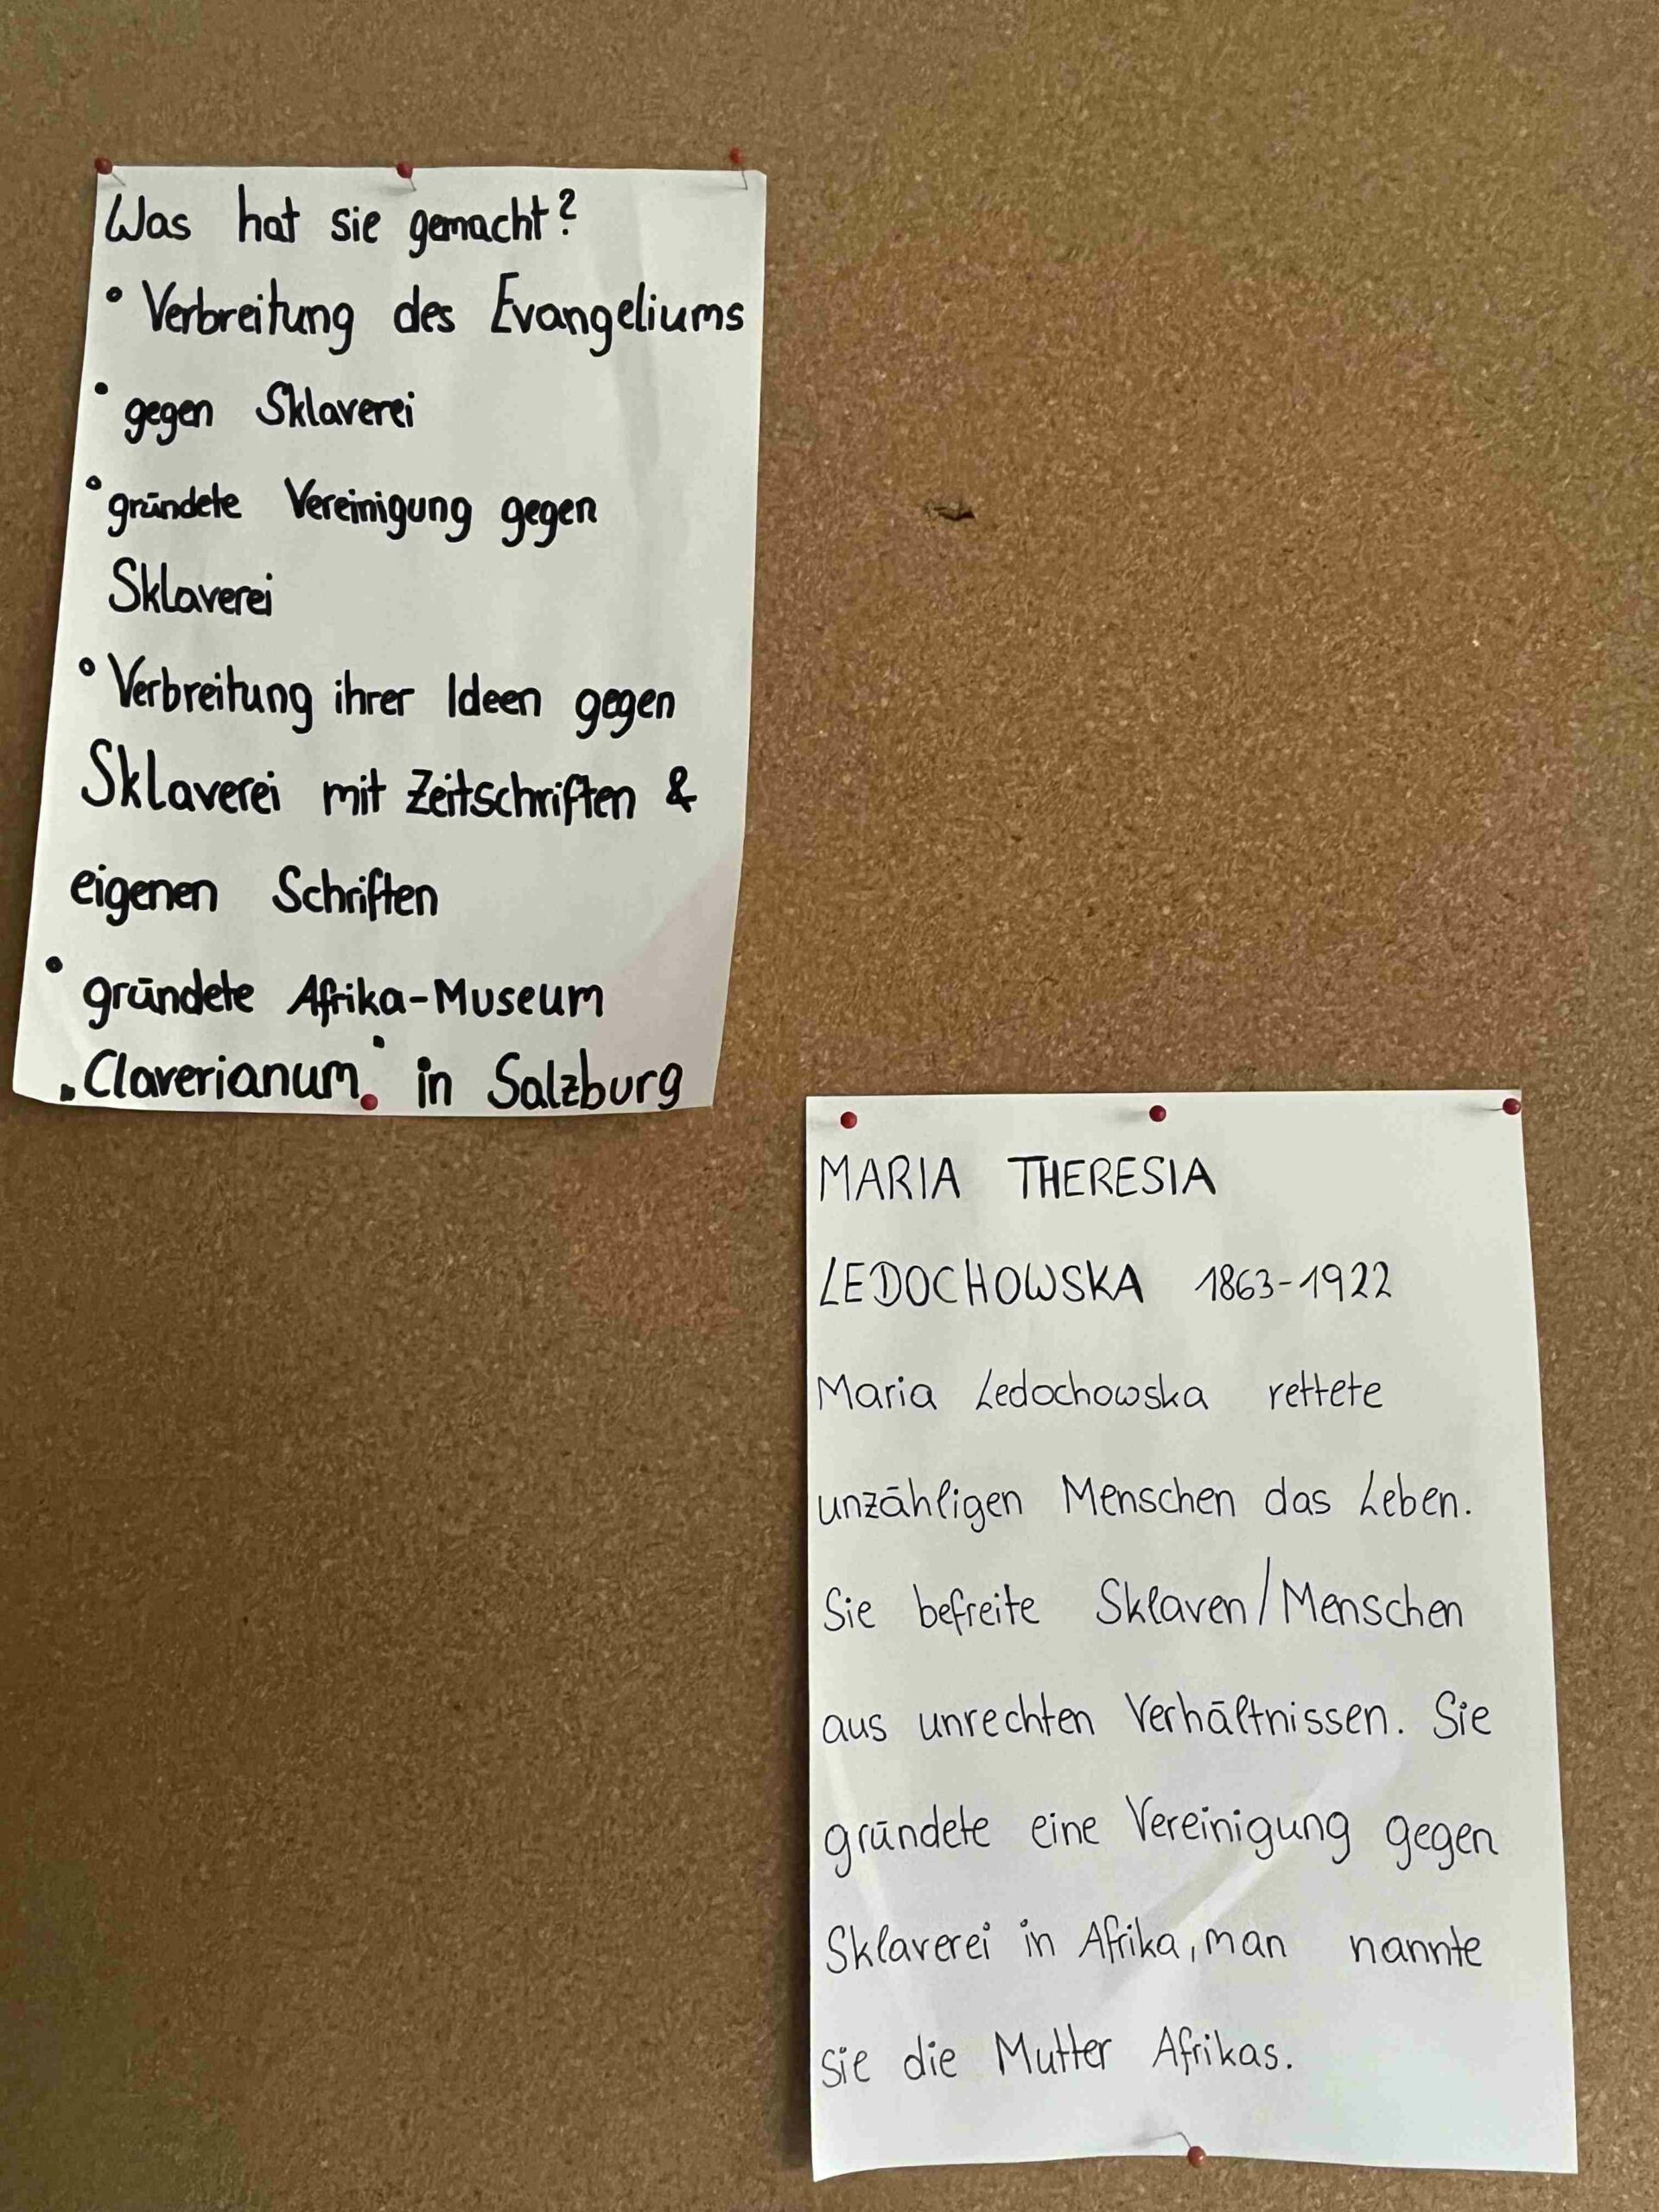 Was hat sie gemacht?
° Verbreitung des Evangeliums
• gegen Sklaverei
° gründete Vereinigung gegen
Sklaverei
° Verbreitung ihrer Ideen gegen
Sklaverei mit Zeitschriften &
eigenen Schriften
• gründete Afrika-Museum
„Claverianum" in Salzburg
MARIA THERESIA
LEDOCHOWSKA 1863-1922
Maria Ledochowska rettete
unzähligen Menschen das Leben.
Sie befreite Sklaven/Menschen
aus unrechten Verhältnissen. Sie
gründete eine Vereinigung gegen
Sklaverei in Afrika, man nannte
sie die Mutter Afrikas.